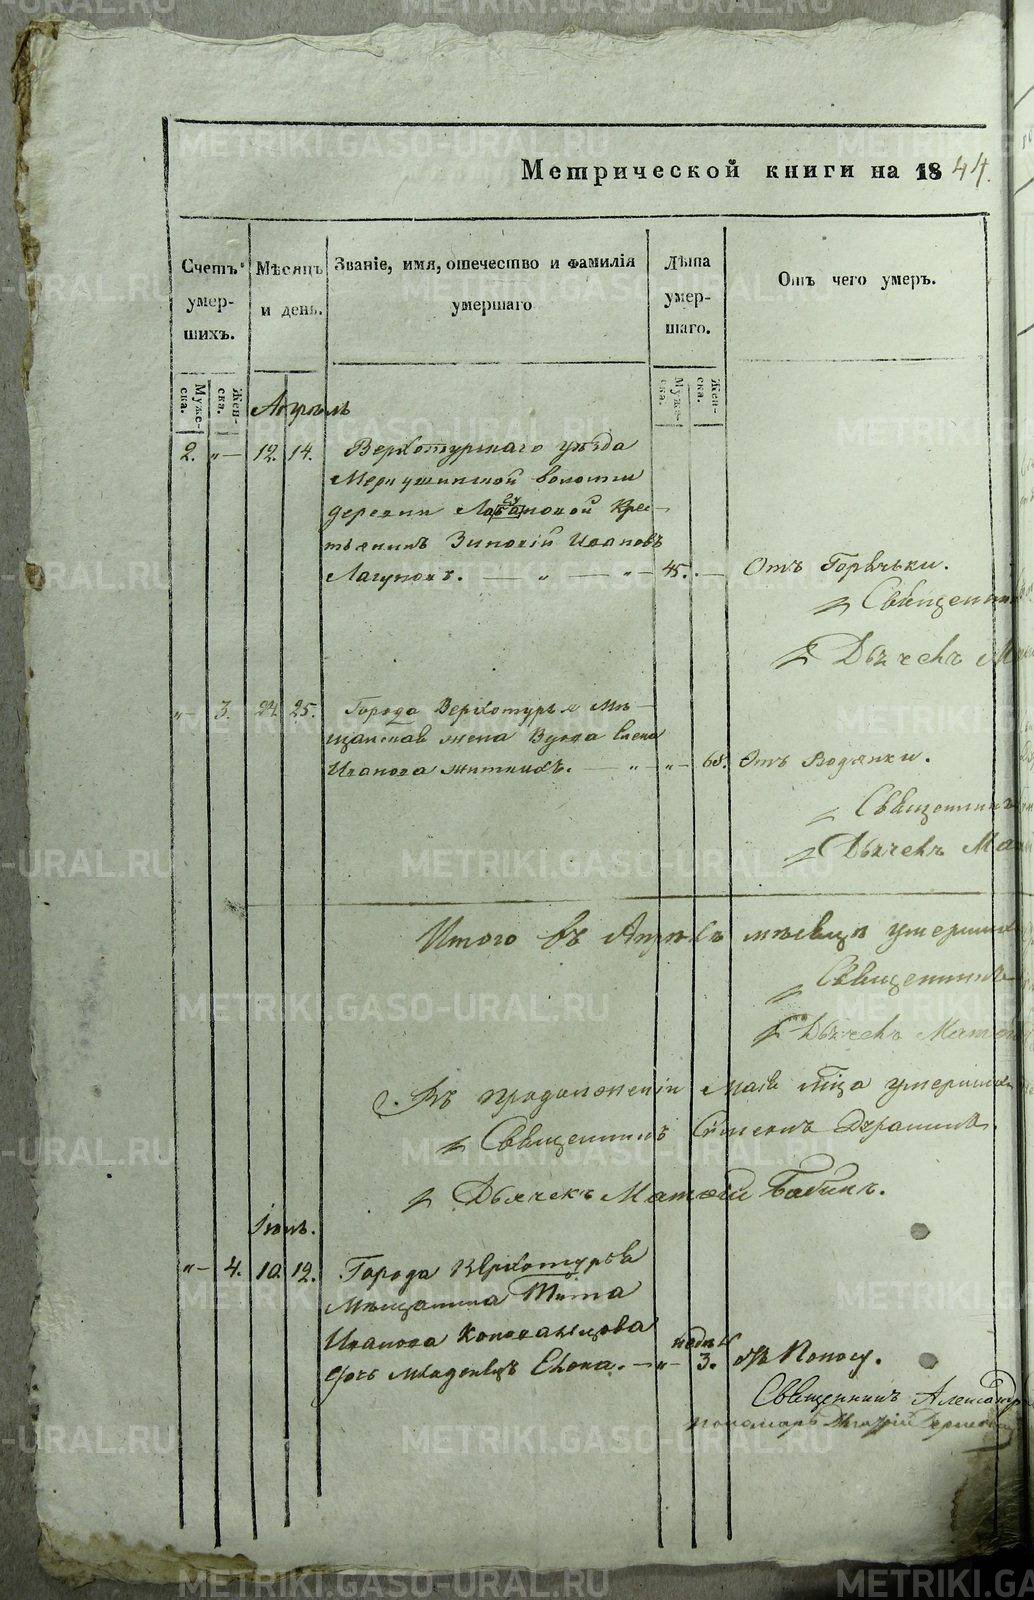 Метрической книги на 1844.
Счетъ умер-шихъ.
Мѣсяцъ и день.
Званіе, имя, отечество и фамилія умершаго
Лѣта умер-шаго.
Отъ чего умеръ.
Муже-ска.
Жен-ска.
Муже-ска.
Жен-ска.
Апрель
2. „ — 12. 14. Верхотурскаго уѣзда
Меркушинской волости
деревни Крес-
тьянинъ Зиновій Ивановъ
Лагуновъ. — „ — „ — 45. — Отъ Горячьки.
Священник
Дьячекъ М
„ 3. 24. 25. Города Верхотурья Мѣ-
щанская жена Вдова Елена
Иванова — „ — „ — 68. Отъ Водянки.
Священникъ
Дьячекъ Ма
Итого въ Апрелѣ мѣсяцѣ умерших
Священникъ
Дьячекъ Матѳ
Въ продолженіи маія м͠ца умерших
Священникъ Симеонъ
Дьячекъ Матѳей Бабинъ.
Іюнь.
„ — 4. 10. 12. Города Верхотурья
Мѣщанина Тита
Иванова Коновальцова
дочь младенецъ Елена. — „ — недѣль 3. отъ Поносу.
Священникъ Александръ
пономарь
METRIKI.GASO-URAL.RU